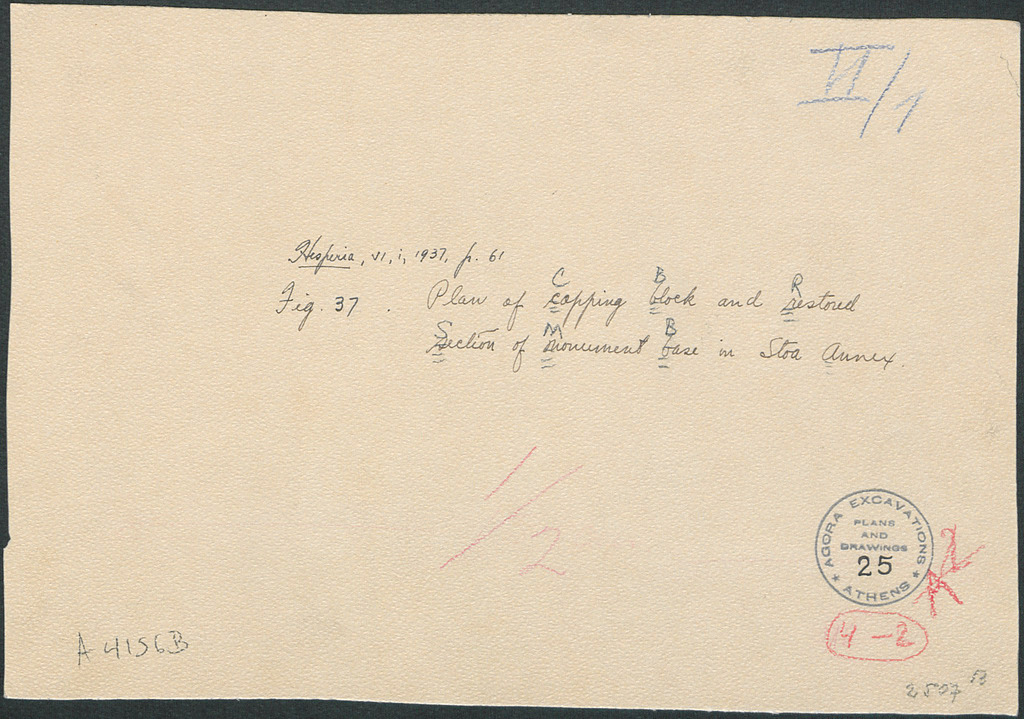 VI/1
Hesperia, VI, i, 1937, p. 61
C B R
Fig. 37. Plan of copping block and restored
S M B
Section of monument base in Stoa Annex.
1/2
AGORA EXCAVATIONS
PLANS
AND
DRAWINGS
25
★ ATHENS ★
2
H-2
A 4156B
2507 B